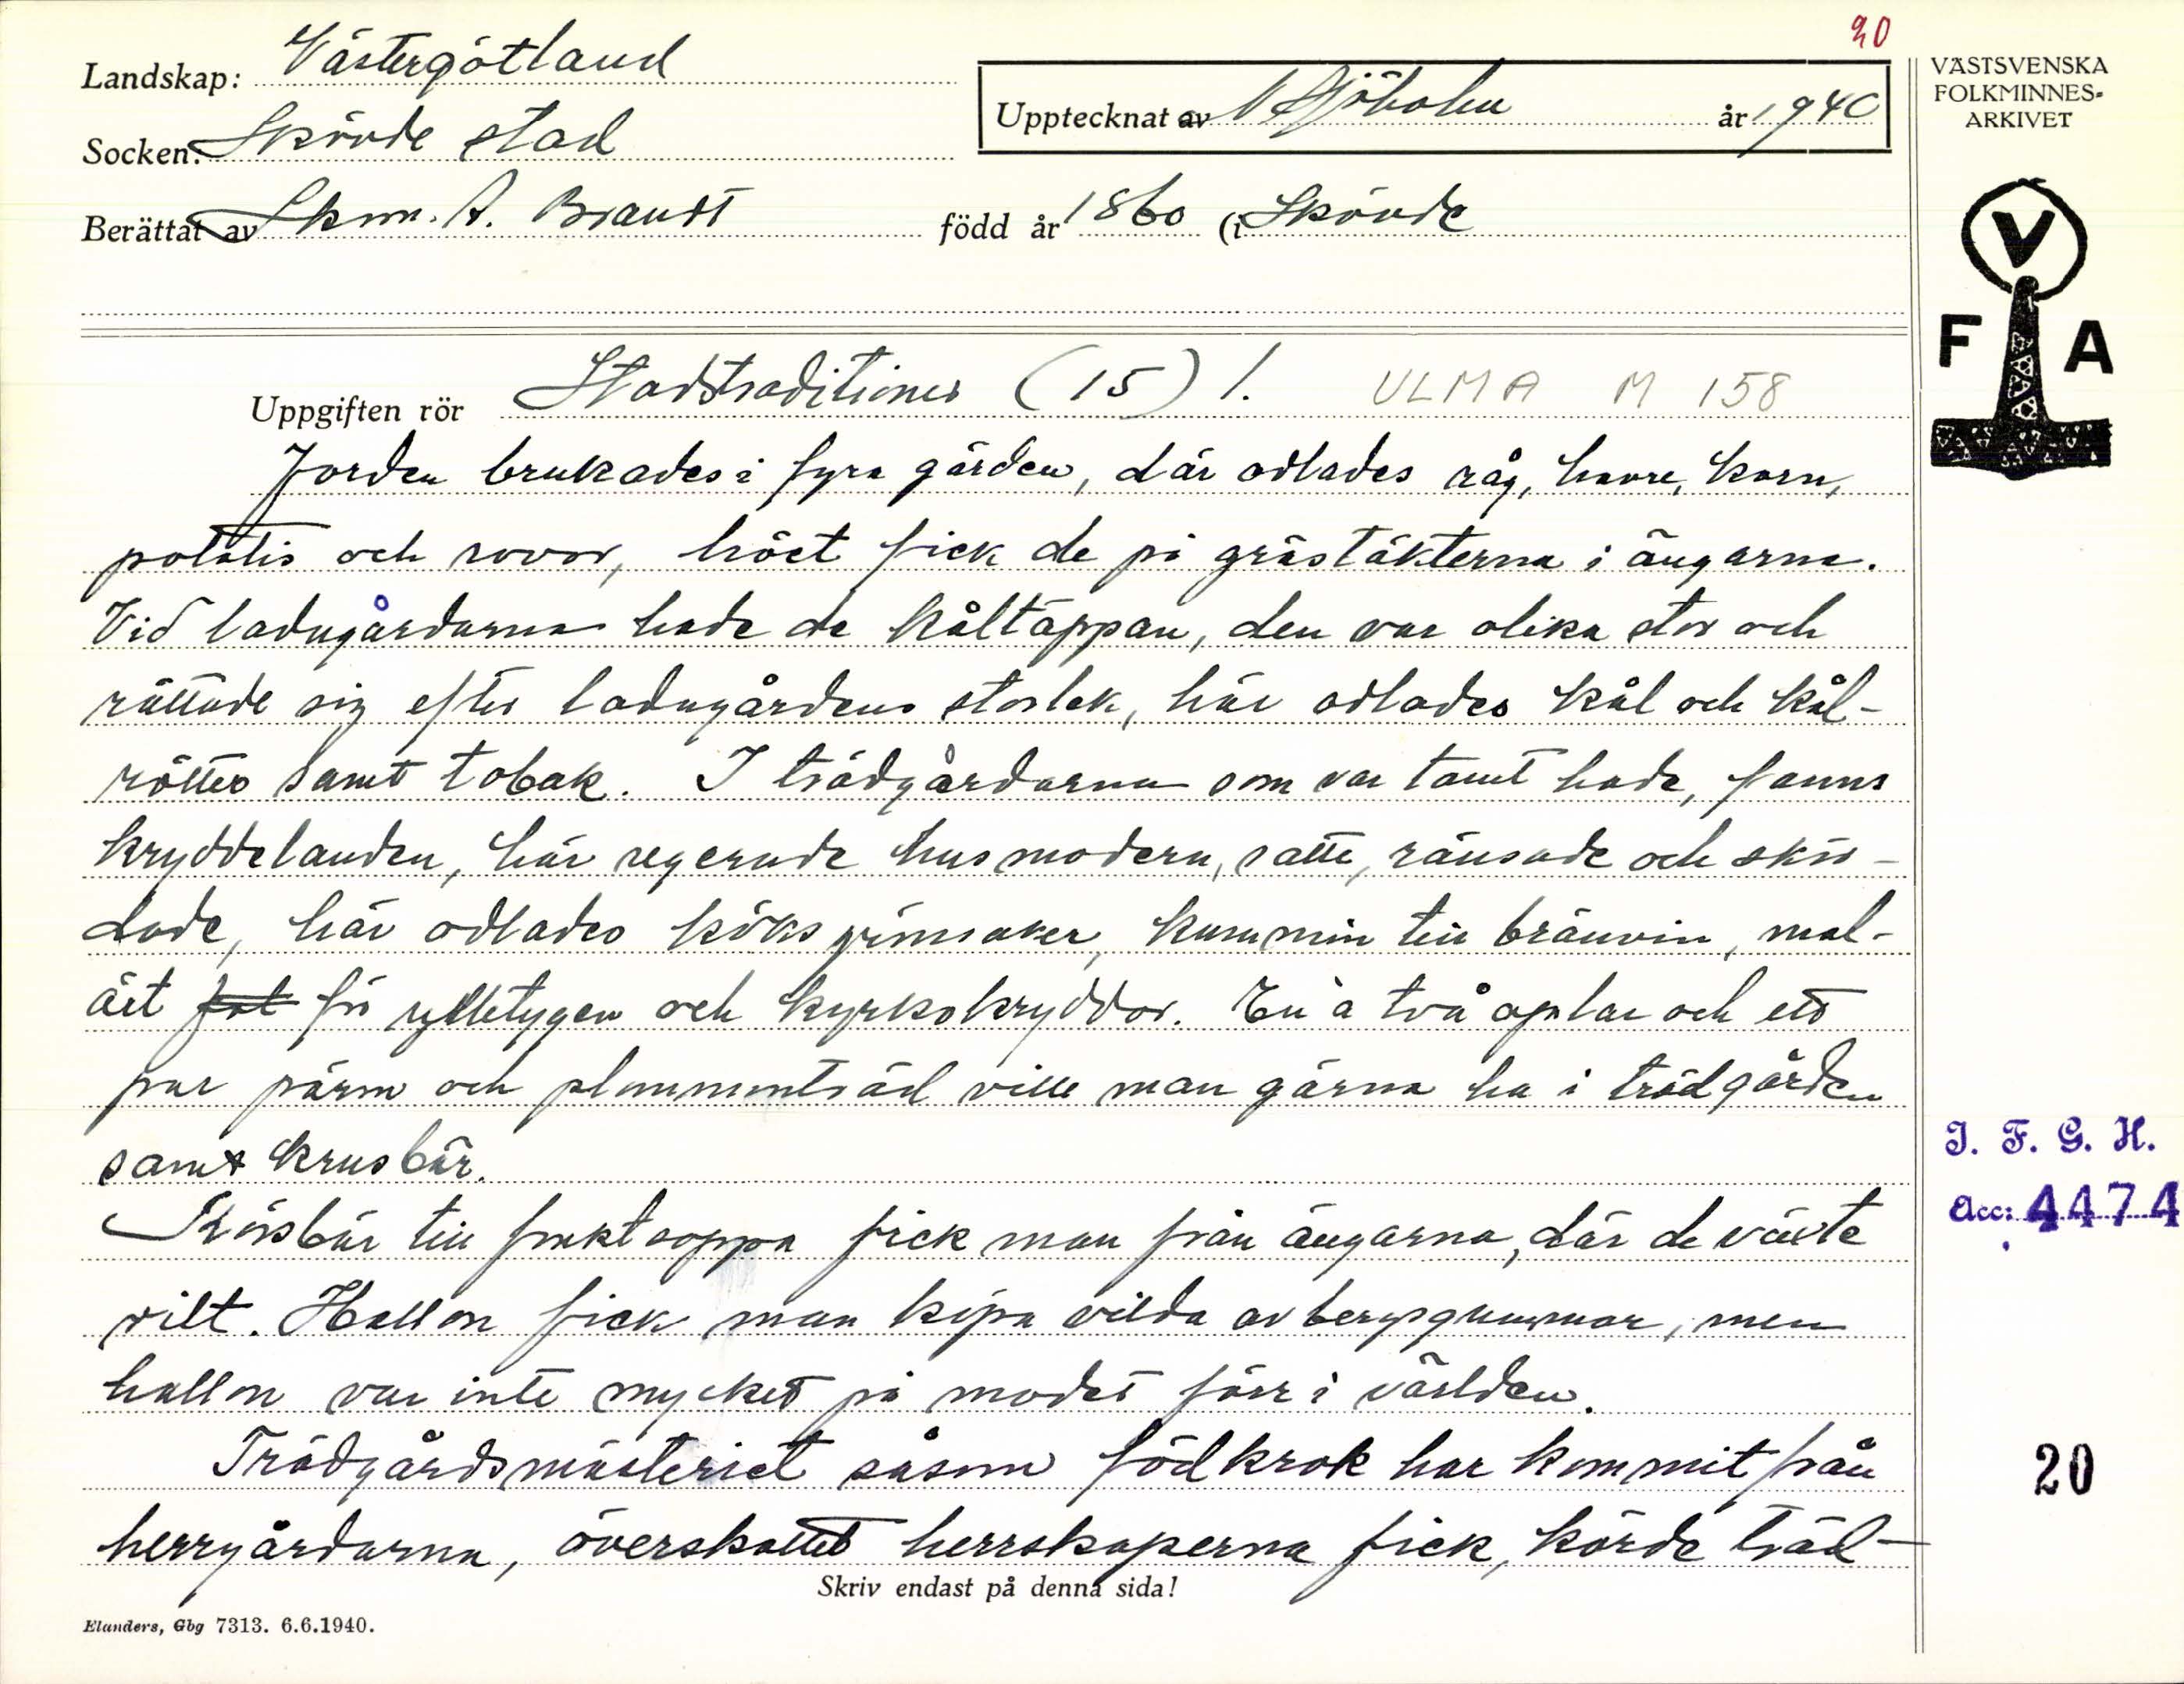 20
Landskap: Västergötland
Upptecknat av N Sjöholm år 1940
VÄSTSVENSKA
FOLKMINNES-
ARKIVET
Socken: Skövde stad
Berättat av Skm. A. Brandt född år 1860 (i Skövde
V
F A
Uppgiften rör Stadstraditioner (15) 1. ULMA M 158
Jorden brukades i fyra gärden, där odlades råg, havre, korn,
potatis och rovor, höet fick de på grästäkterna i ängarna.
Vid ladugårdarna hade de kåltäppan, den var olika stor och
rättade sig efter ladugårdens storlek, här odlades kål och kål-
rötter samt tobak. I trädgårdarna som var tamt hade, fanns
kryddelanden, här regerade husmodern, satte, ränsade och skör-
dade, här odlades köksgrönsaker, kummin till brännvin, mal-
ört för ylletygen och kyrkokryddor. En à två aplar och ett
par päron och plommonträd ville man gärna ha i trädgården
samt krusbär.
Körsbär till fruktsoppa fick man från ängarna, där de växte
vilt. Hallon fick man köpa vilda av bergsgummor, men
hallon var inte mycket på modet förr i världen.
Trädgårdsmästeriet såsom födkrok har kommit från
herrgårdarna, överskottet herrskaperna fick, körde träd-
I. F. G. H.
Acc: 4474
20
Skriv endast på denna sida!
Elanders, Gbg 7313. 6.6.1940.